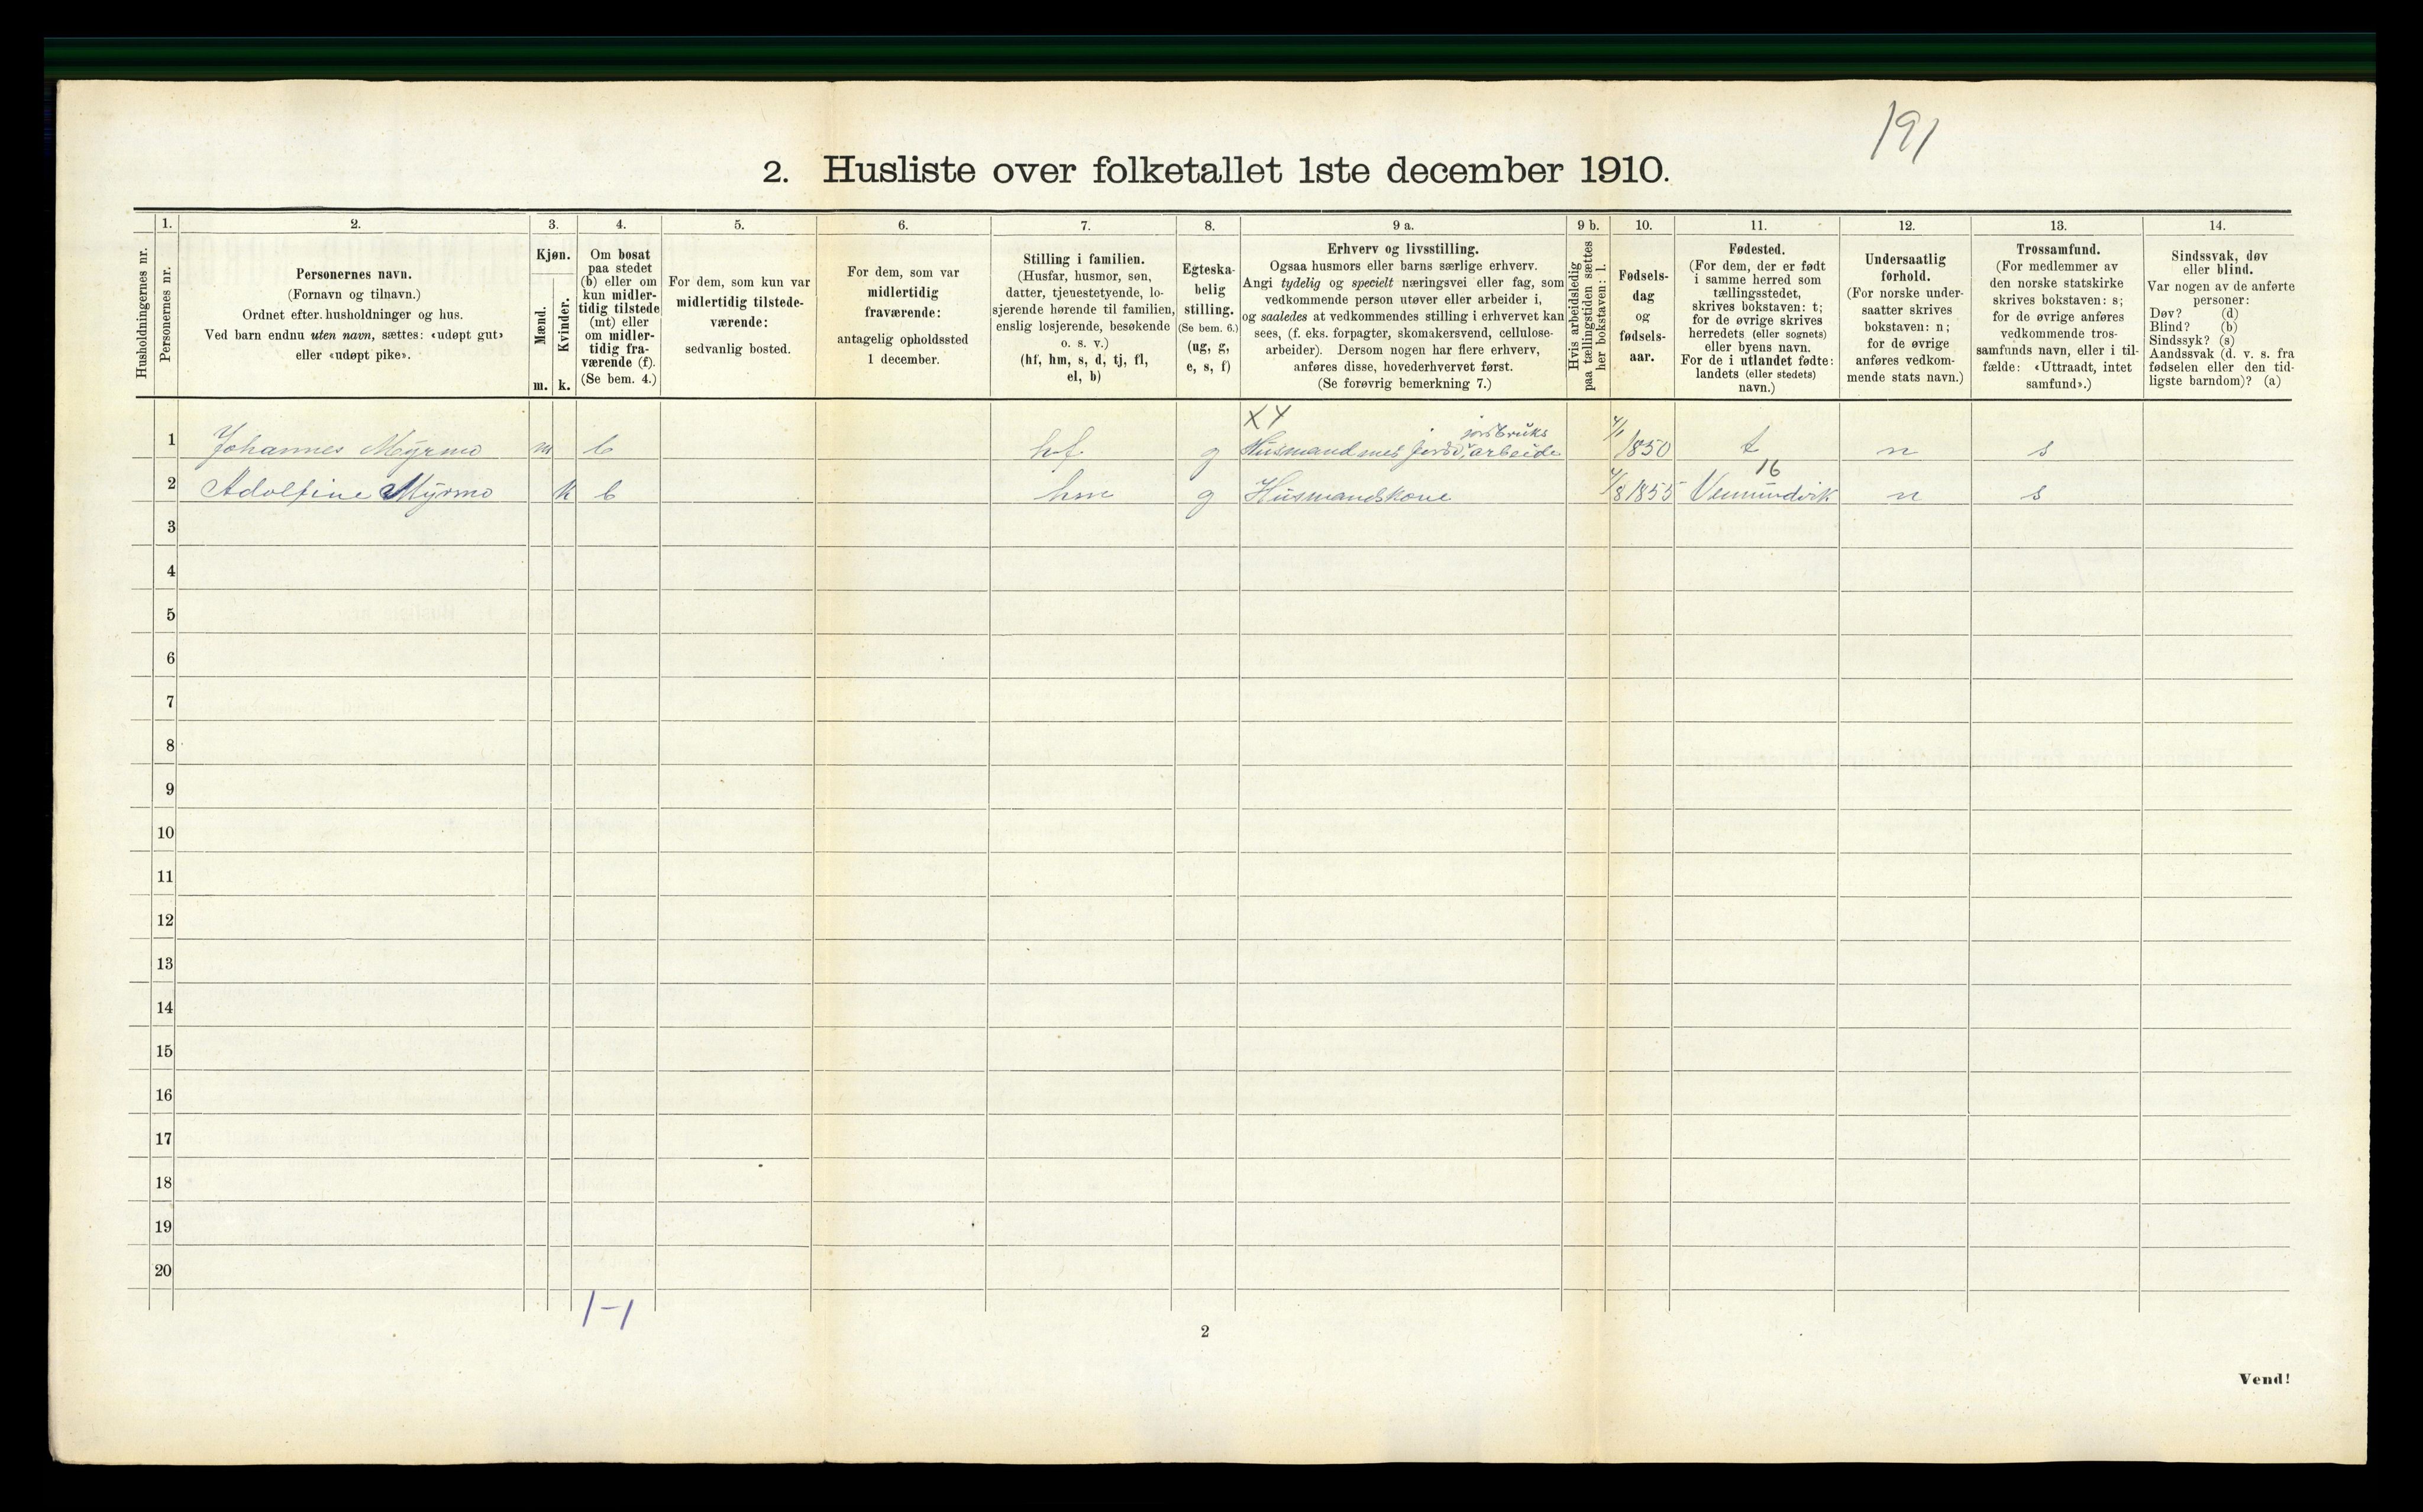 191
2. Husliste over folketallet 1ste december 1910.
Husholdningernes nr.
1.
Personernes nr.
2.
Personernes navn.
(Fornavn og tilnavn.)
Ordnet efter husholdninger og hus.
Ved barn endnu uten navn, sættes: «udøpt gut»
eller «udøpt pike».
3.
Kjøn.
Mænd.
Kvinder.
m. k.
4.
Om bosat
paa stedet
(b) eller om
kun midler-
tidig tilstede
(mt) eller
om midler-
tidig fra-
værende (f).
(Se bem. 4.)
5.
For dem, som kun var
midlertidig tilstede-
værende:
sedvanlig bosted.
6.
For dem, som var
midlertidig
fraværende:
antagelig opholdssted
1 december.
7.
Stilling i familien.
(Husfar, husmor, søn,
datter, tjenestetyende, lo-
sjerende hørende til familien,
enslig losjerende, besøkende
o. s. v.)
(hf, hm, s, d, tj, fl,
el, b)
8.
Egteska-
belig
stilling.
(Se bem. 6.)
(ug, g,
e, s, f)
9 a.
Erhverv og livsstilling.
Ogsaa husmors eller barns særlige erhverv.
Angi tydelig og specielt næringsvei eller fag, som
vedkommende person utøver eller arbeider i,
og saaledes at vedkommendes stilling i erhvervet kan
sees, (f. eks. forpagter, skomakersvend, cellulose-
arbeider). Dersom nogen har flere erhverv,
anføres disse, hovederhvervet først.
(Se forøvrig bemerkning 7.)
9 b.
Hvis arbeidsledig
paa tællingstiden sættes
her bokstaven: l.
10.
Fødsels-
dag
og
fødsels-
aar.
11.
Fødested.
(For dem, der er født
i samme herred som
tællingsstedet,
skrives bokstaven: t;
for de øvrige skrives
herredets (eller sognets)
eller byens navn.
For de i utlandet fødte:
landets (eller stedets)
navn.)
12.
Undersaatlig
forhold.
(For norske under-
saatter skrives
bokstaven: n;
for de øvrige
anføres vedkom-
mende stats navn.)
13.
Trossamfund.
(For medlemmer av
den norske statskirke
skrives bokstaven: s;
for de øvrige anføres
vedkommende tros-
samfunds navn, eller i til-
fælde: «Uttraadt, intet
samfund».)
14.
Sindssvak, døv
eller blind.
Var nogen av de anførte
personer:
Døv? (d)
Blind? (b)
Sindssyk? (s)
Aandssvak (d. v. s. fra
fødselen eller den tid-
ligste barndom)? (a)
XY
jordbruks
1 Johannes Myrmo m b hf g Husmand med jord, arbeide 1850 t n s
16
2 Adolfine Myrmo k b hm g Husmandskone /8 1855 Vemundvik n s
3
4
5
6
7
8
9
10
11
12
13
14
15
16
17
18
19
20
1-1
2
Vend!